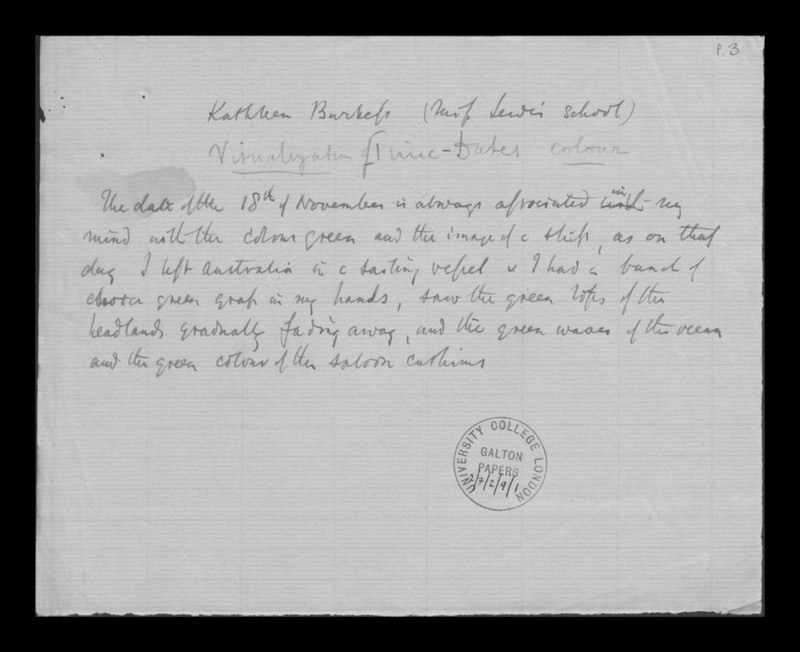 P. 3
Kathleen Burkess (Miss Lewis school)
Visualization of Time-Dates colour
The date of the 18th of November is always associated in my
mind with the colour green and the image of a ship, as on that
day I left Australia in a sailing vessel & I had a bunch of
green grass in my hands, saw the green tops of the
headlands gradually fading away, and the green waves of the ocean
and the green colour of the saloon cushions
UNIVERSITY COLLEGE LONDON
GALTON
PAPERS
2/7/2/9/1